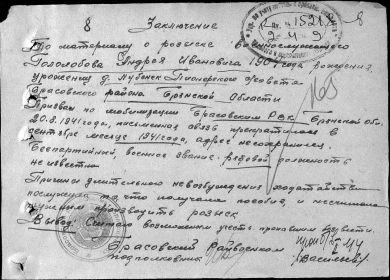 8 Заключение 8
По материалу о розыске военнослужащего
Гололобова Андрея Ивановича 1907 года рождения,
урожения д. Лубенск Пионерского с/совета
Брасовского района Брянской области
Призван по мобилизации Брасовским РВК, Брянской обл.
20.8.1941 года, письменная связь прекратилась в
сентябре месяце 1941 года, адрес не сохранился.
Беспартийный, военное звание рядовой, должность
не известна.
Причина длительного невозбуждения ходатайства
послужила то, что получала пособия, и не
производить розыск
Вывод: Считаю возможным учесть пропавшим безвести.
Брасовский Райвоенком
подполковник /Васильев/